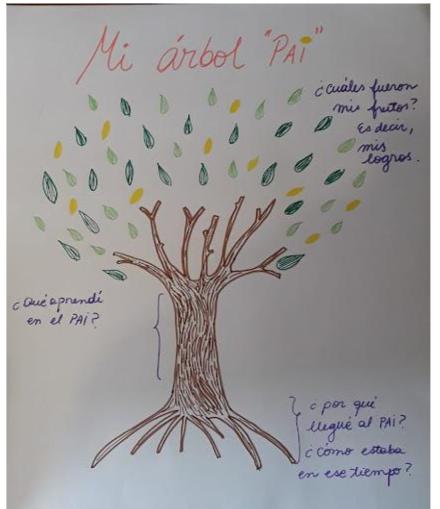 Mi árbol "PAI"
¿Cuáles fueron
mis frutos?
Es decir,
mis
logros.
¿Qué aprendí
en el PAI?
¿por qué
llegué al PAI?
¿Cómo estaba
en ese tiempo?